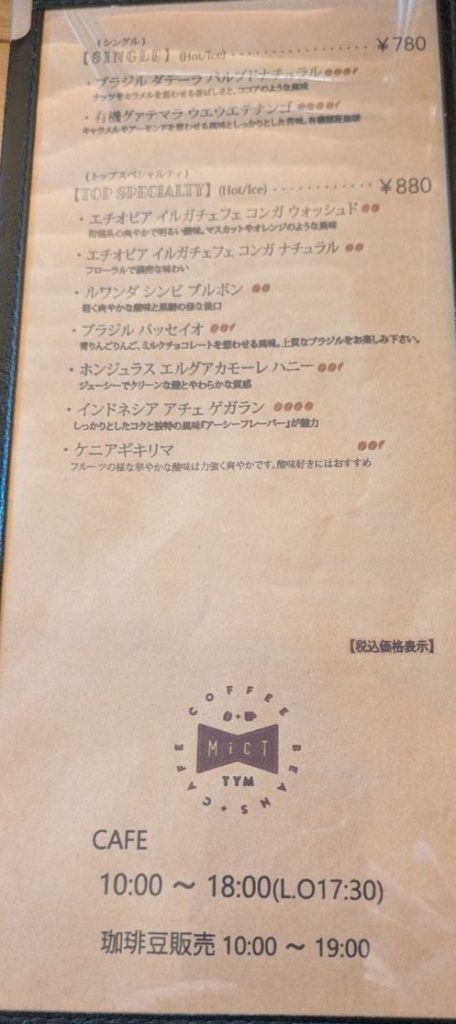 (シングル)
【SINGLE】 (Hot/Ice) ・・・・・・・・・・・・ ￥780
・ブラジル ダテーラ パルプドナチュラル
ナッツやカラメルを思わせる香ばしさと、ココアのような風味
・有機グァテマラ ウエウエテナンゴ
キャラメルやアーモンドを思わせる風味としっかりとした苦味。有機認証珈琲
(トップスペシャルティ)
【TOP SPECIALTY】 (Hot/Ice) ・・・・・・・・ ￥880
・エチオピア イルガチェフェ コンガ ウォッシュド
柑橘系の爽やかで明るい酸味。マスカットやオレンジのような風味
・エチオピア イルガチェフェ コンガ ナチュラル
フローラルで濃密な味わい
・ルワンダ シンビ ブルボン
軽く爽やかな酸味と黒糖の様な後口
・ブラジル パッセイオ
青りんごりんご、ミルクチョコレートを思わせる風味。上質なブラジルをお楽しみ下さい。
・ホンジュラス エルグアカモーレ ハニー
ジューシーでクリーンな酸とやわらかな質感
・インドネシア アチェ ゲガラン
しっかりとしたコクと独特の風味『アーシーフレーバー』が魅力
・ケニアギキリマ
フルーツの様な華やかな酸味は力強く爽やかです。酸味好きにはおすすめ
【税込価格表示】
CAFE COFFEE BEANS
MiCT
TYM
CAFE
10:00 ～ 18:00(L.O17:30)
珈琲豆販売 10:00 ～ 19:00